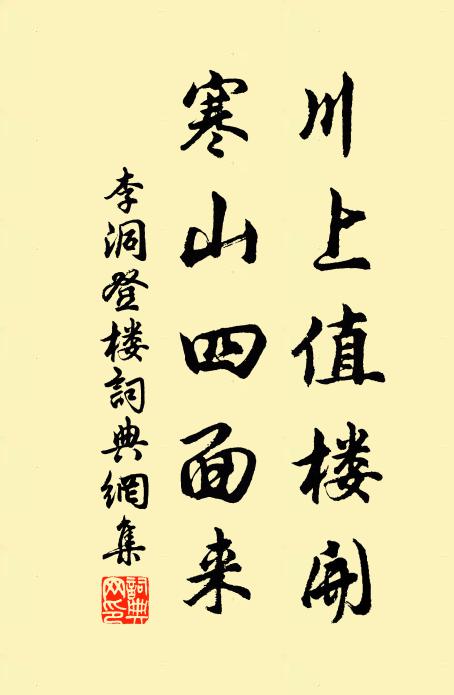 川上值楼開
寒山四面来
李洞登楼詞典網集
詞典网印